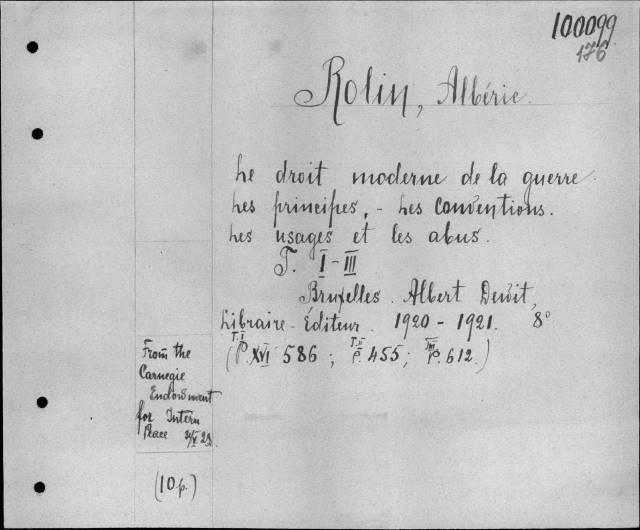 100099
476
Rolin, Albéric.
Le droit moderne de la guerre.
Les principes, - Les conventions.
Les usages et les abus.
T. I - III
Bruxelles. Albert Dewit,
Libraire - Éditeur. 1920 - 1921. 8°
(T.I P. XVI 586 ; T.II P. 455 ; T.III P. 612.)
From the
Carnegie
Endowment
for Intern
Peace
(10 p.)